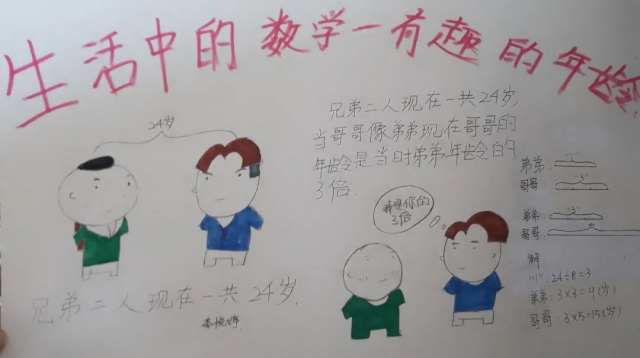 生活中的数学一有趣的年龄
24岁
兄弟二人现在一共24岁,
当哥哥像弟弟现在哥哥的
年龄是当时弟弟年龄的
3倍.
我是你的
3倍
兄弟二人现在一共24岁.
弟弟: "1"
哥哥: "3"
弟弟: "3"
哥哥:
解
"1": 24÷8=3
弟弟: 3×3=9(岁)
哥哥: 3×5=15(岁)